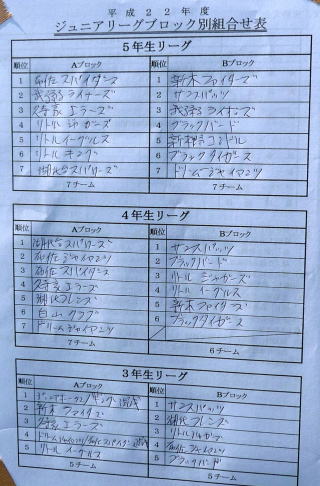 平成22年度
ジュニアリーグブロック別組合せ表
5年生リーグ
順位 Aブロック 順位 Bブロック
1 砂佐スパイダース 1 新木ファイターズ
2 ライナーズ 2 サンスパッツ
3 久寺家エラーズ 3 ライオンズ
4 リトルジャガーズ 4 ブラックバード
5 リトルイーグルス 5 コンドル
6 リトルキング 6 ブラックタイガース
7 湖北台スパローズ 7 ドリームジャイアンツ
7チーム 7チーム
4年生リーグ
順位 Aブロック 順位 Bブロック
1 湖北台スパローズ 1 サンスパッツ
2 ジャイアンツ 2 ブラックバード
3 スパイダース 3 リトルジャガーズ
4 久寺家エラーズ 4 リトルイーグルス
5 湖北フレンズ 5 新木ファイターズ
6 白山クラブ 6 ブラックタイガース
7 ドリームジャイアンツ
7チーム 6チーム
3年生リーグ
順位 Aブロック 順位 Bブロック
1 1 サンスパッツ
2 新木ファイターズ 2 湖北フレンズ
3 久寺家エラーズ 3 リトルジャガーズ
4 ドリームジャイアンツ/ 4 ジャイアンツ
5 リトルイーグルス 5 ブラックバード
5チーム 5チーム